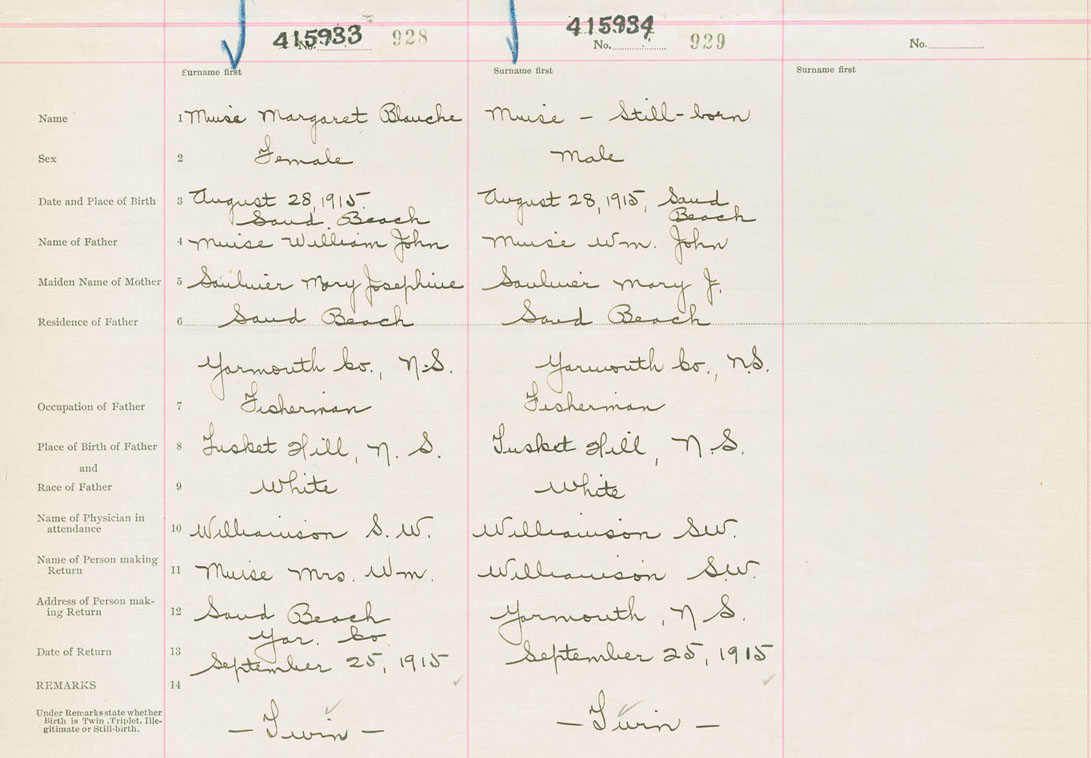 415933
No. 928
415934
No. 929
No.
Surname first
Surname first
Surname first
Name 1 Muise Margaret Blanche Muise – Still-born
Sex 2 Female Male
Date and Place of Birth 3 August 28, 1915. August 28, 1915, Sand
Sand Beach Beach
Name of Father 4 Muise William John Muise Wm. John
Maiden Name of Mother 5 Saulnier Mary Josephine Saulnier Mary J.
Residence of Father 6 Sand Beach Sand Beach
Yarmouth Co., N.S. Yarmouth Co., N.S.
Occupation of Father 7 Fisherman Fisherman
Place of Birth of Father 8 Tusket Hill, N. S. Tusket Hill, N. S.
and
Race of Father 9 White White
Name of Physician in
attendance 10 Williamson S. W. Williamson S.W.
Name of Person making
Return 11 Muise Mrs. Wm. Williamson S.W.
Address of Person mak-
ing Return 12 Sand Beach Yarmouth, N. S.
Yar. Co
Date of Return 13 September 25, 1915 September 25, 1915
REMARKS 14
Under Remarks state whether
Birth is Twin, Triplet, Ille-
gitimate or Still-birth.
– Twin – – Twin –